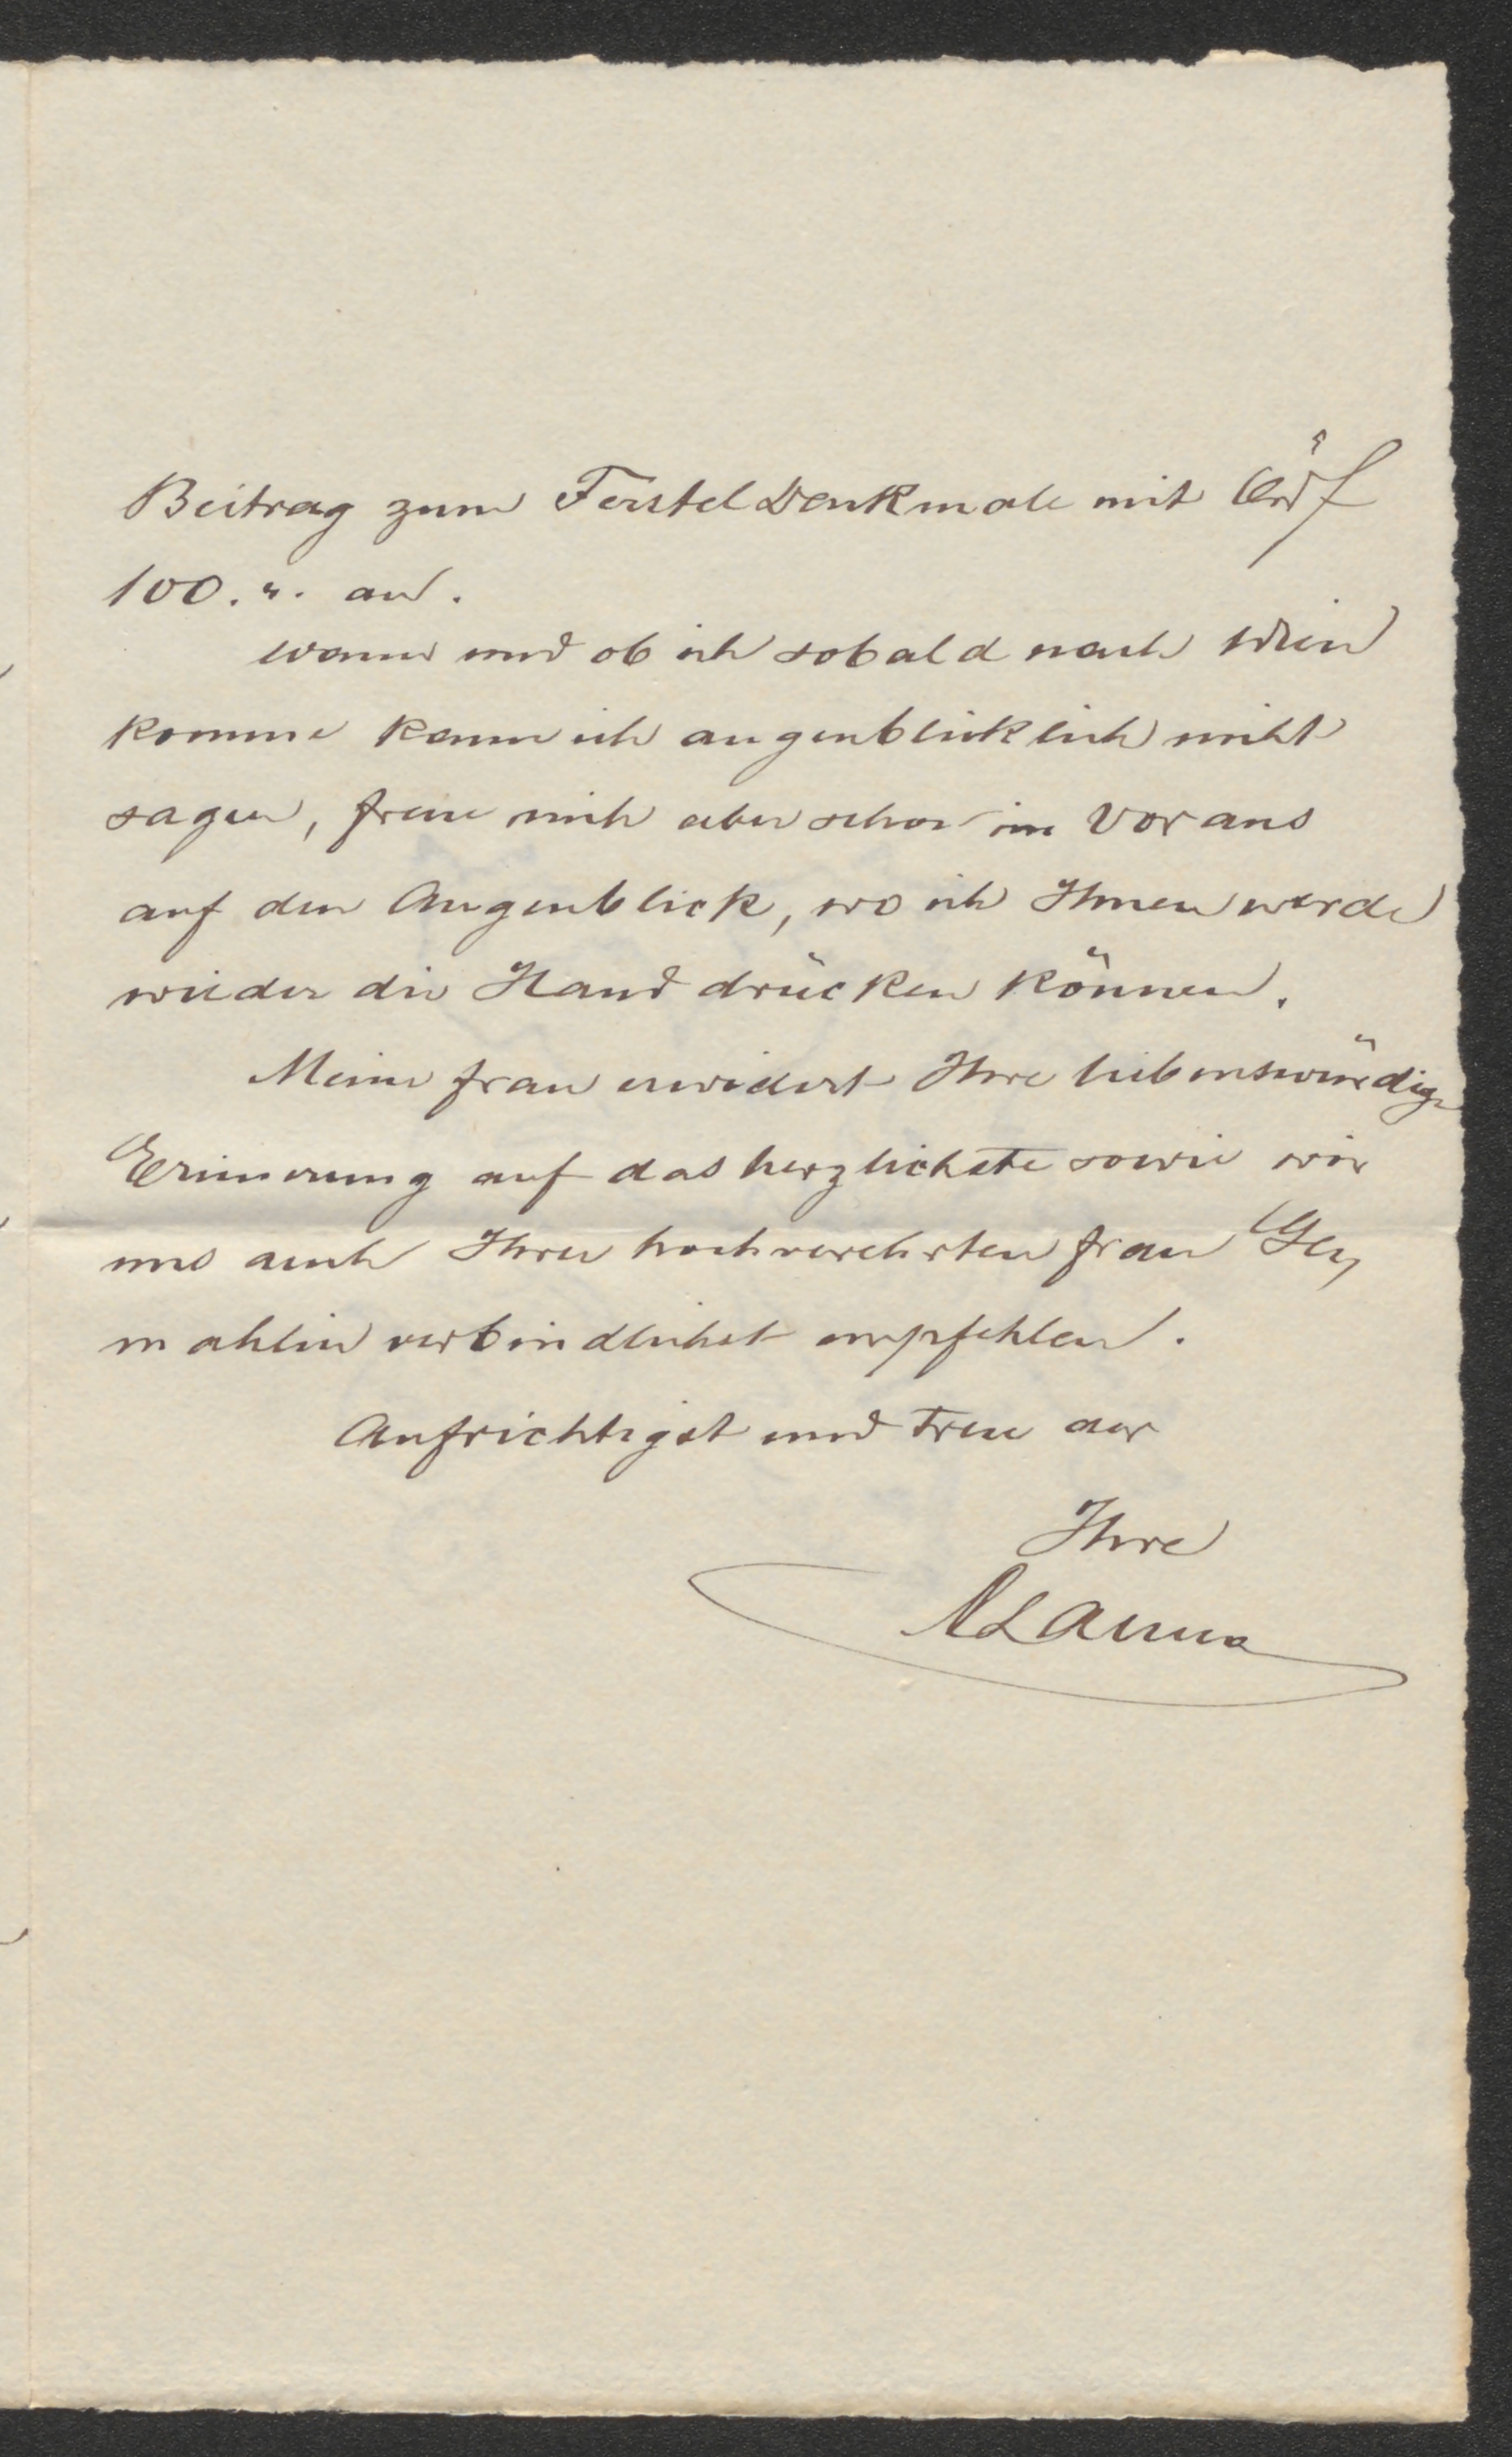 Beitrag zum Ferstel Denkmale mit
100. ". an.
Wann und ob ich sobald nach Wien
komme kann ich augenblicklich nicht
sagen, freue mich aber schon im Voraus
auf den Augenblick, wo ich Ihnen werde
wieder die Hand drücken können.
Meine Frau erwidert Ihre liebenswürdige
Erinnerung auf das herzlichste sowie wir
uns auch Ihrer hochverehrten Frau Ge„
mahlin verbindlichst empfehlen.
Aufrichtigst und treu der
Ihre
A Lanna